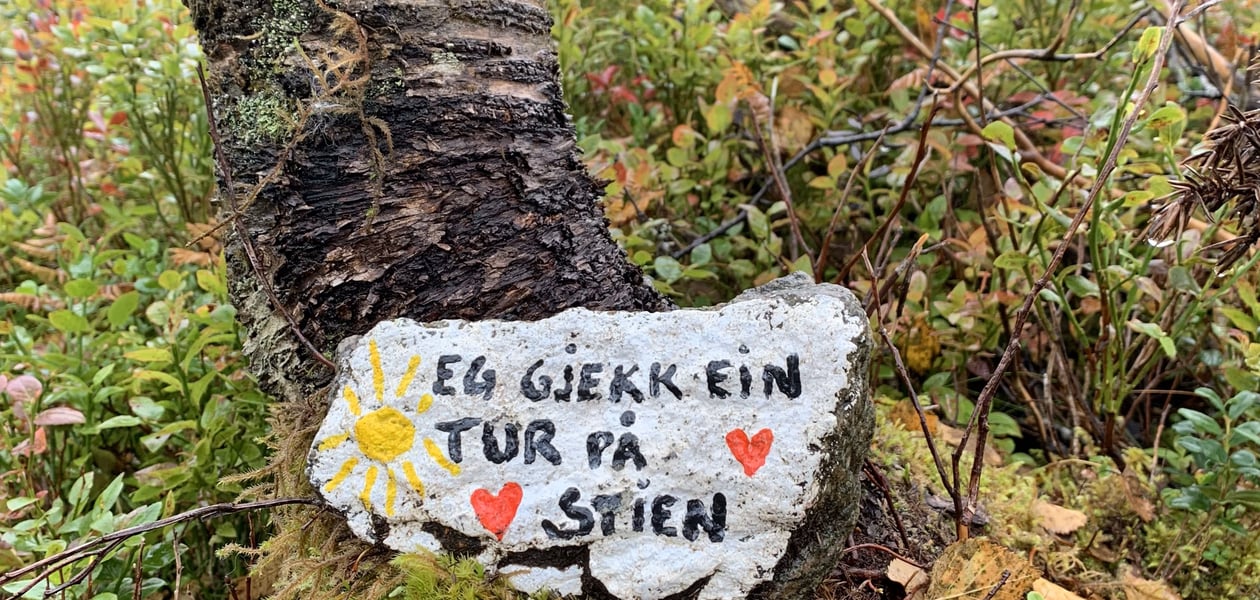 EG GJEKK EIN
TUR PÅ
STIEN